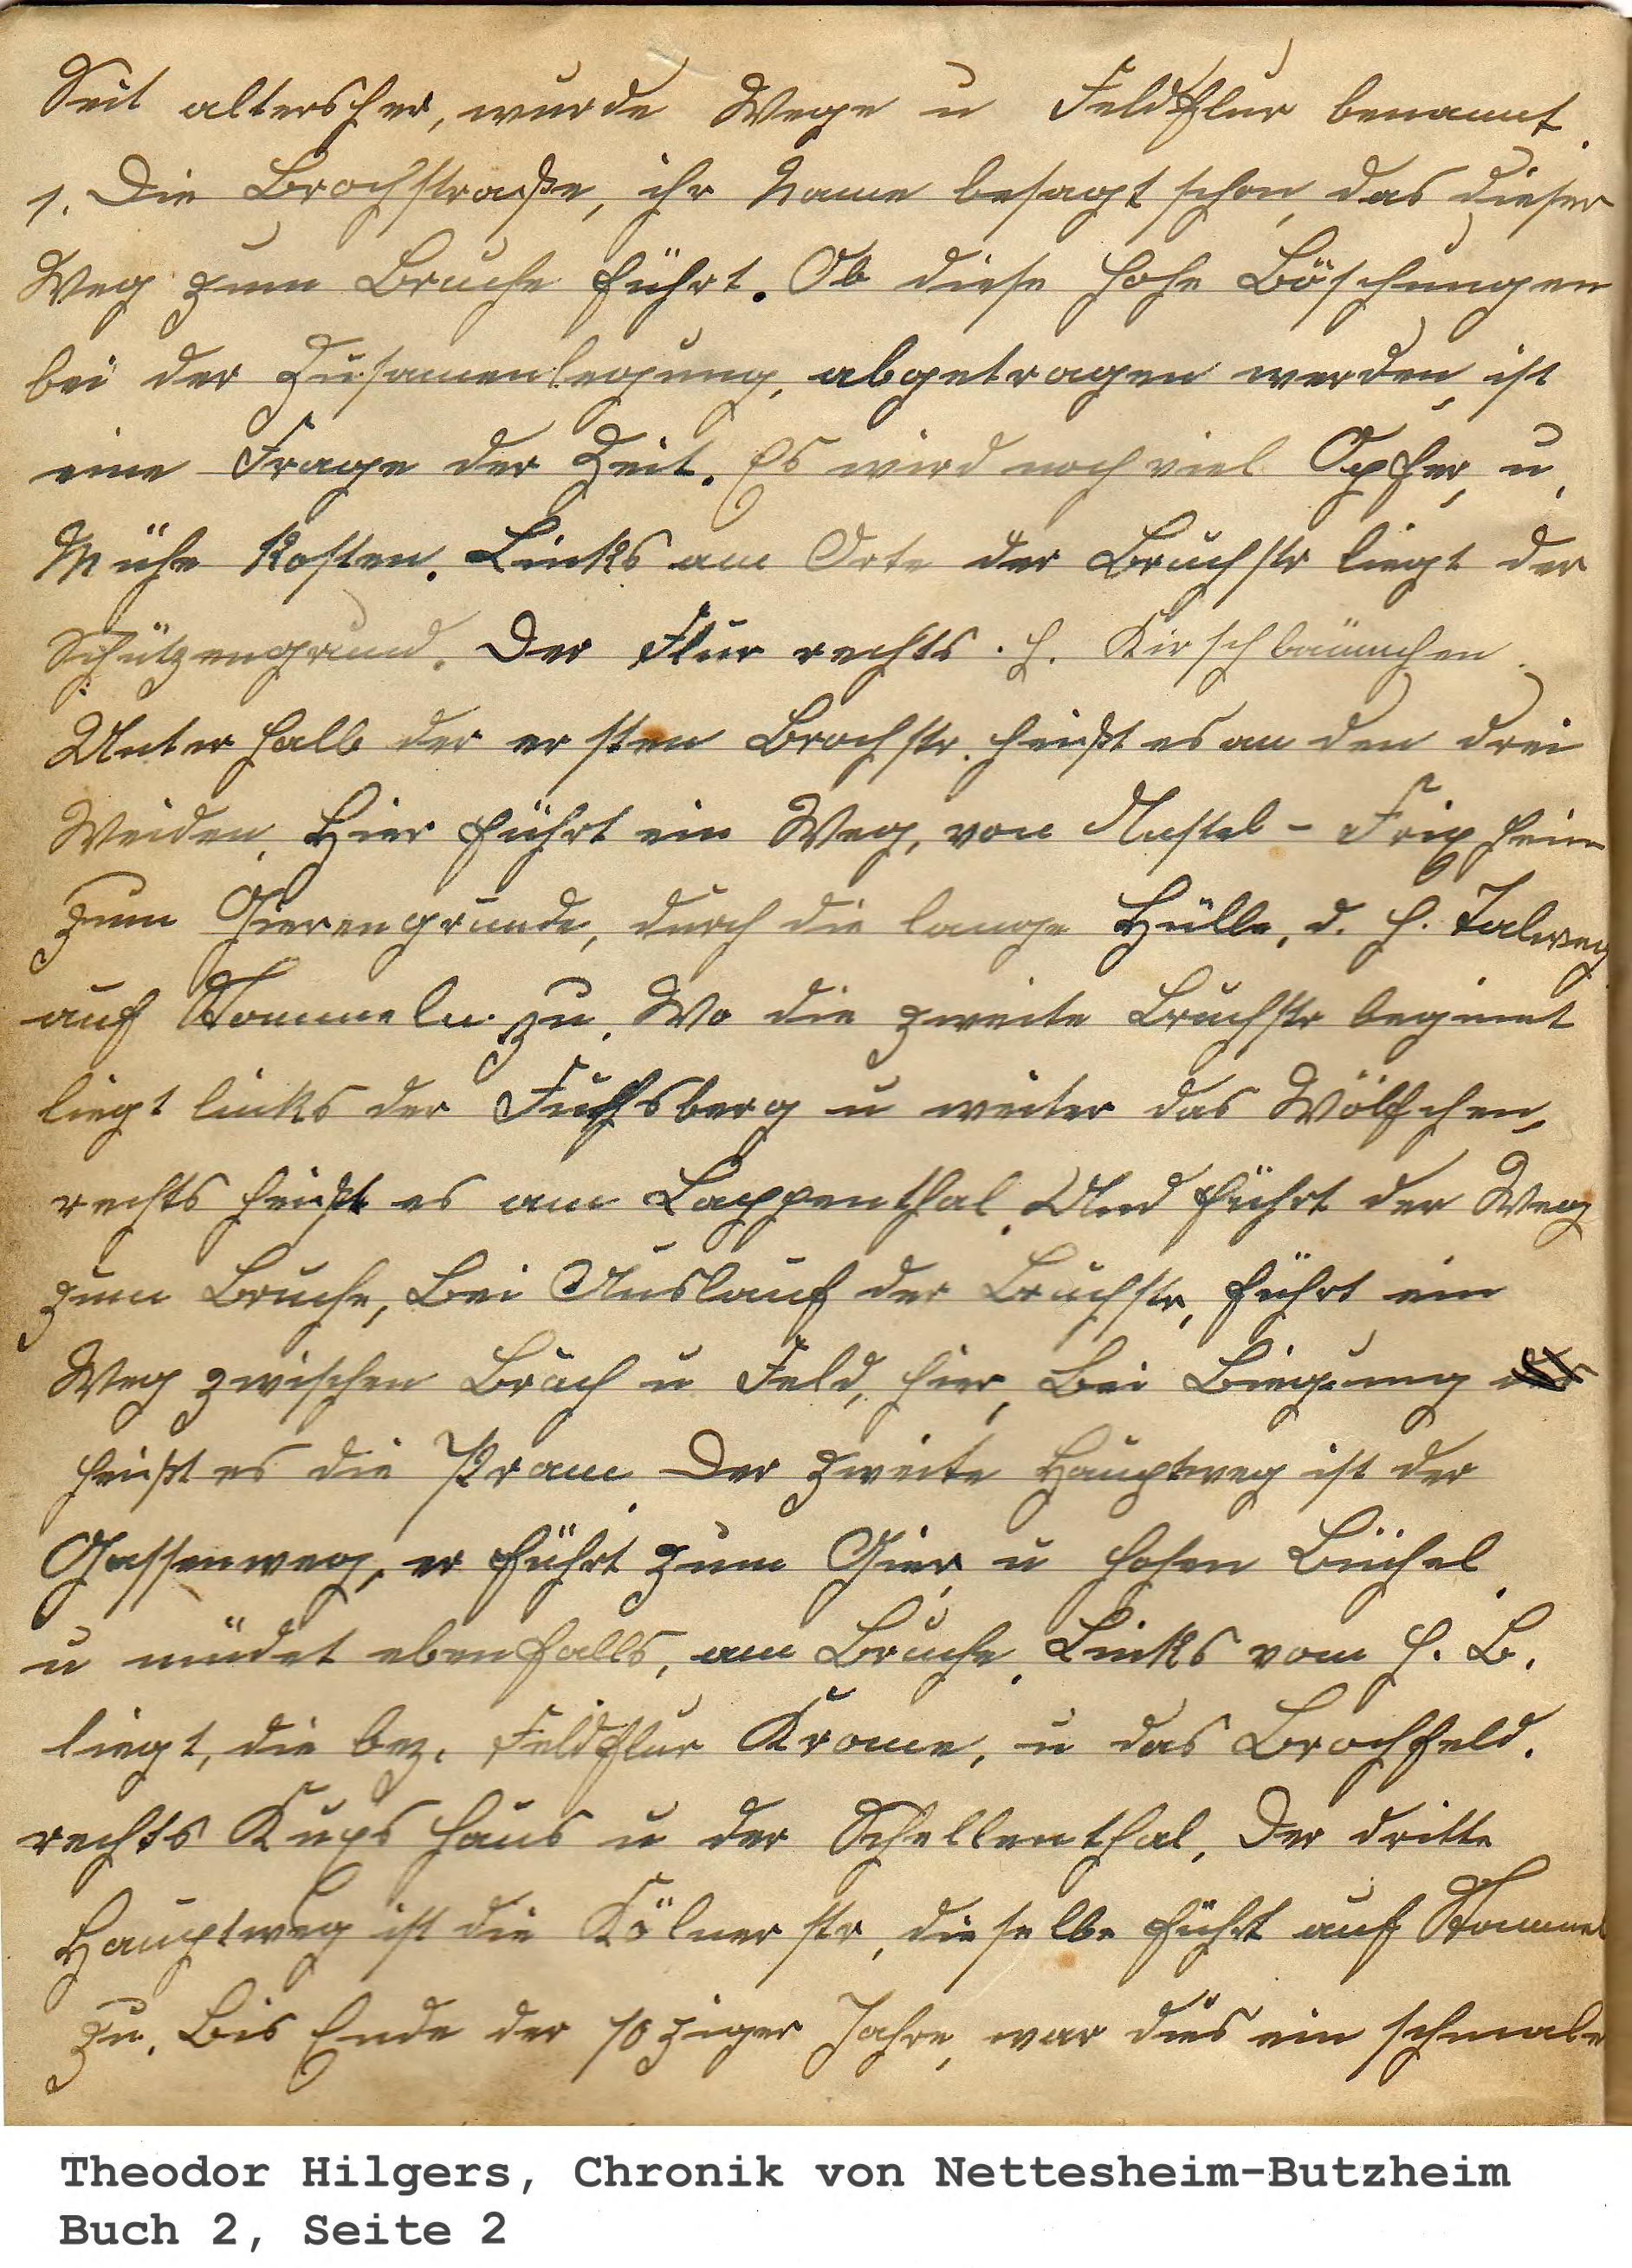 Seit altersher, wurde Wege u Feldflur benannt.
1. Die Brochstraße, ihr Name besagt schon, das dieser
Weg zum Bruche führt. Ob diese hohe Böschungen
bei der Zusamenlegung, abgetragen werden, ist
eine Frage der Zeit. Es wird noch viel Opfer, u,
Mühe kosten. Links am Orte der Bruchstr liegt der
Schützengrund. Der Flur rechts. h. Kirschbäumchen.
Unterhalb der ersten Brochstr. heißt es an den drei
Weiden. Hier führt ein Weg, von
zum Gierengrunde, durch die lange Hülle, d. h. Talweg
auf Stommeln zu. Wo die zweite Bruchstr beginnt
liegt links der Fuchsberg u weiter das Wölfchen,
rechts heißt es am Lappenthal. Und führt der Weg
zum Bruche, Bei Auslauf der Bruchstr, führt ein
Weg zwischen Bruch u Feld, hier, bei Biegung
heißt es die Pram. Der zweite Hauptweg ist der
Gassenweg, er führt zum Gier, u hohen Büchel.
u mündet ebenfalls, am Bruche. Links vom h. B.
liegt, die bez. Feldflur Krome, u das Brochfeld.
rechts Kups Haus u der Schellenthal. Der dritte
Hauptweg ist die Kölner str, dieselbe führt auf Stommel
zu. Bis Ende der 70ziger Jahre, war dies ein schmale
Theodor Hilgers, Chronik von Nettesheim-Butzheim
Buch 2, Seite 2